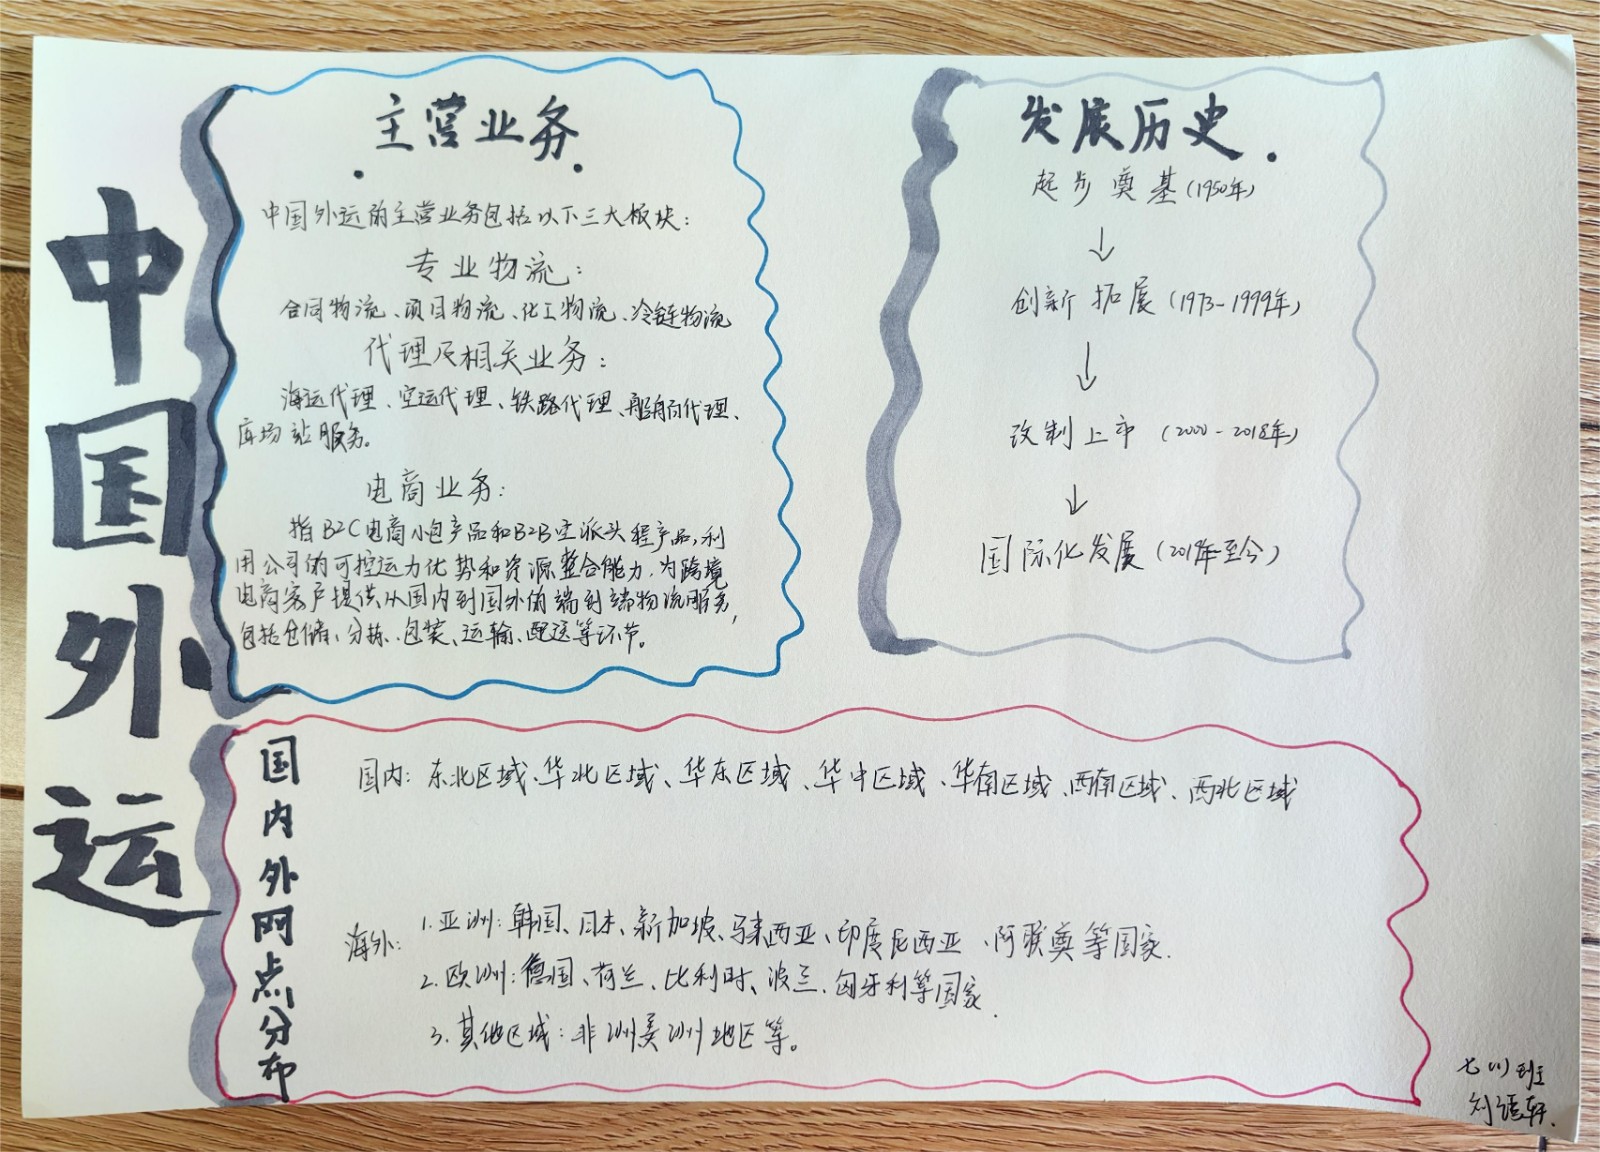 中国外运
主营业务
中国外运的主营业务包括以下三大板块：
专业物流：
合同物流、项目物流、化工物流、冷链物流
代理及相关业务：
海运代理、空运代理、铁路代理、船舶代理、
库场站服务。
电商业务：
指B2C电商小包产品和B2B空派头程产品，利
用公司的可控运力优势和资源整合能力，为跨境
电商客户提供从国内到国外的端到端物流服务，
包括仓储、分拣、包装、运输、配送等环节。
发展历史
起步奠基（1950年）
↓
创新拓展（1973-1999年）
↓
改制上市（2000-2018年）
↓
国际化发展（2019年至今）
国内外网点分布
国内：东北区域、华北区域、华东区域、华中区域、华南区域、西南区域、西北区域
海外：1.亚洲：韩国、日本、新加坡、马来西亚、印度尼西亚、阿联奠等国家.
2.欧洲：德国、荷兰、比利时、波兰、匈牙利等国家.
3.其他区域：非洲美洲地区等。
七（1）班